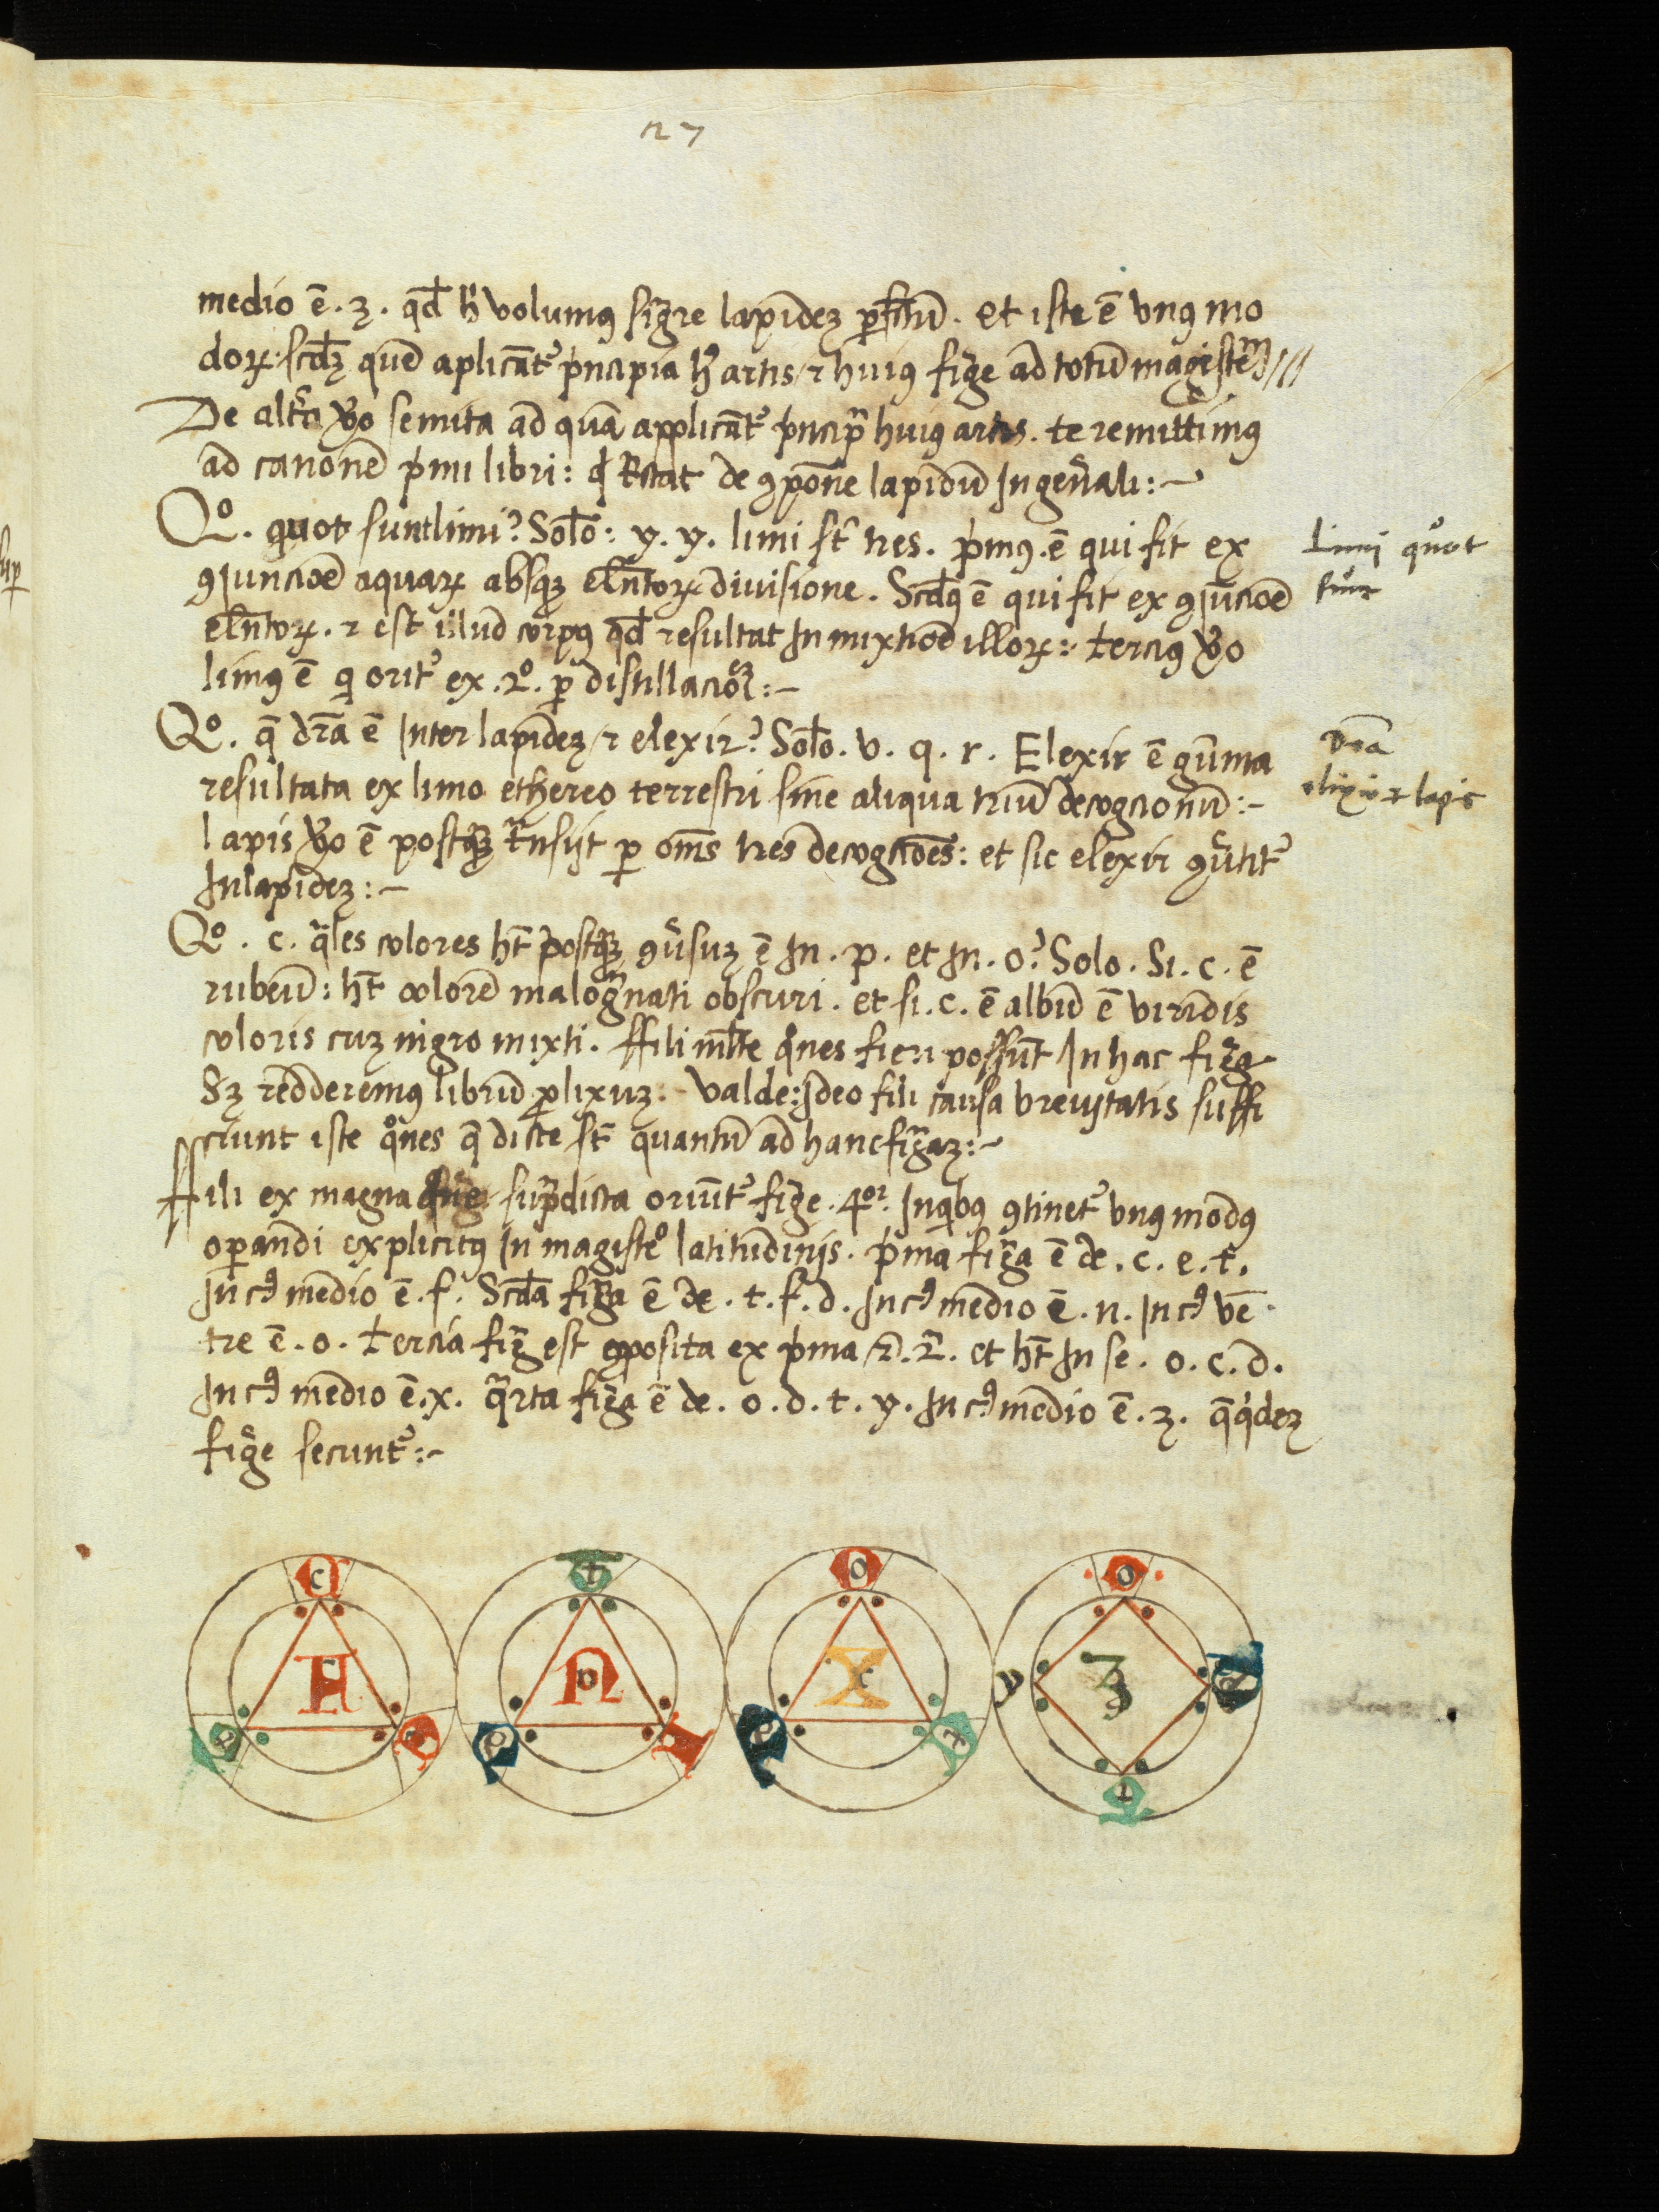 27
medio ē . ȝ . qd̄ hͥ volumꝰ figͬre lapideꝫ ꝑfc̄tū . et iste ē vnꝰ mo
doꝝ : scd̄ꝫ quē aplicātᷣ pͥncipia hꝰ artis ⁊ huiꝰ fige ad totū magistͤm
De altͣ ṽo semita ad quā applicātᷣ pͥncipͣ huiꝰ artis . te remittimꝰ
ad canonē pͥmi libri : de ꝯpōne lapidū In geͤnali : ~
Qo . quot sunt limi ? Solo : y . y . limi st̄ tres . pͥmꝰ . ē qui fit ex
ꝯiunctiōe aquaꝝ absqꝫ eln̄toꝝ diuisione . Scd̄ꝰ ē qui fit ex ꝯiūctiōe
eln̄toꝝ . ⁊ est illud corpꝰ qd̄ resultat In mixtiōe illoꝝ : tercius ṽo
limꝰ ē qͥ oritᷣ ex . 2o . ꝑ distillacioēꝫ : ~
Qo . q̄ dr̄a ē Inter lapideꝫ ⁊ elexir ? Solo . v . q . r . Elexir ē gūma
resultata ex limo ethereo terrestri sine aliqua triū decogcionū : ~
lapis ṽo ē postqꝫ tͣnsijt ꝑ om̄s tres decogciōes : et sic elexir ꝯv̄titᷣ
In lapideꝫ : ~
Qo . c . qͣles colores ht̄ postqꝫ ꝯv̄suꝫ ē In . p . et In . o ? Solo . Si . c . ē
rubeū : ht̄ colorē malogͣnati obscuri . et si . c . ē albū ē viridis
coloris cuꝫ nigro mixti . ffili ml̄te qōnes fieri possūt In hac figͣa
Sꝫ redderemꝰ librū ꝓlixuꝫ . valde : Ideo fili causa breuitatis suffi
ciunt iste qōnes q̄ dicte st̄ quantū ad hanc figͣaꝫ : ~
ffili ex magna supͣdicta oriūtᷣ fige . 4or . In qͥbꝰ ꝯtinetᷣ vnꝰ modꝰ
oꝑandi explicitꝰ In magistͦ latitudinis . pͥma figͣa ē de . c . e . t .
In cꝰ medio ē . f . Scd̄a figͣa ē de . t . f . d . In cꝰ medio ē . n . In cꝰ vē
tre ē . o . tercia figͣ est ꝯposita ex pͥma ⁊ . 2ͣ . et ht̄ In se . o . c . d .
In cꝰ medio ē . x . qͣrta figͣa ē de . o . d . t . y . In cꝰ medio ē . ȝ . q̄ qͥdeꝫ
fige secuntᷣ : ~
Limi quot
sunt
Dr̄a
elixir ⁊ lapis
c
t
o
o
N
X
y
ȝ
t